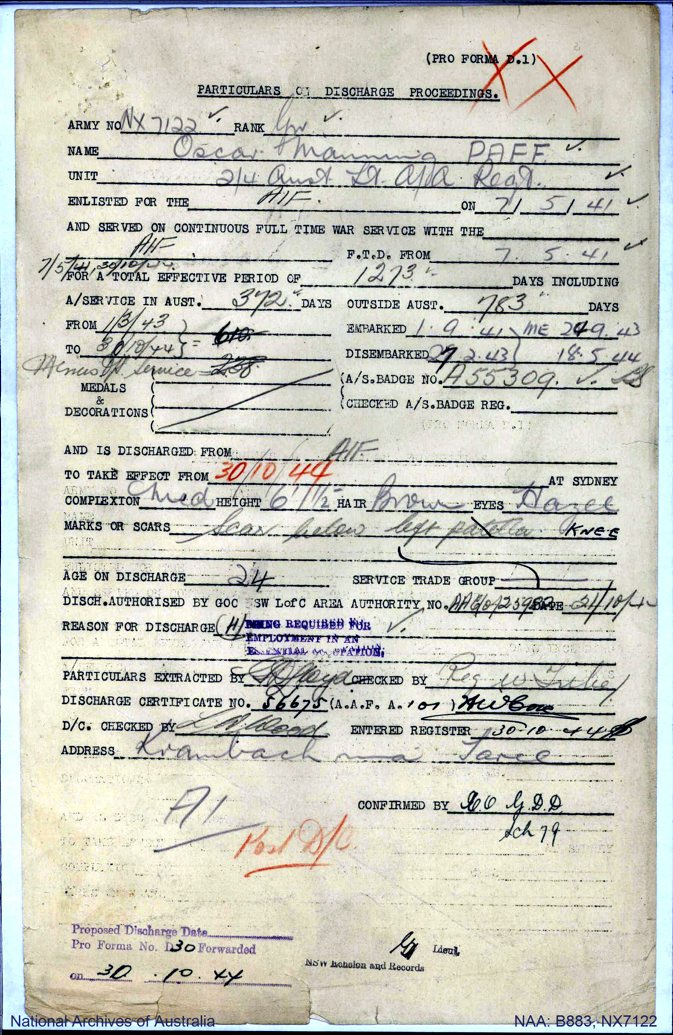 (PRO FORMA D.1)
PARTICULARS ON DISCHARGE PROCEEDINGS.
ARMY NO NX 7122 RANK Gnr
NAME Oscar Manning PAFF
UNIT 2/4 Aust Lt A/A Regt.
ENLISTED FOR THE AIF. ON 7/5/41
AND SERVED ON CONTINUOUS FULL TIME WAR SERVICE WITH THE
AIF F.T.D. FROM 7.5.41
7/5/41, 30/10/44
FOR A TOTAL EFFECTIVE PERIOD OF 1273 DAYS INCLUDING
A/SERVICE IN AUST. 372 DAYS OUTSIDE AUST. 783 DAYS
FROM 1/3/43 EMBARKED 1.9.41 ME 24.9.43
TO 30/10/44 = 610 DISEMBARKED 27.2.43 18.5.44
Minus service 238
MEDALS & DECORATIONS
(A/S.BADGE NO. A55309.
(CHECKED A/S.BADGE REG.
AND IS DISCHARGED FROM AIF
TO TAKE EFFECT FROM 30/10/44 AT SYDNEY
COMPLEXION Med HEIGHT 6' 1½ HAIR Brown EYES Hazel
MARKS OR SCARS Scar below left patella KNEE
AGE ON DISCHARGE 24 SERVICE TRADE GROUP
DISCH.AUTHORISED BY GOC NSW LofC AREA AUTHORITY NO. DATE 21/10/44
REASON FOR DISCHARGE (H) BEING REQUIRED FOR
EMPLOYMENT IN AN
ESSENTIAL OCCUPATION,
PARTICULARS EXTRACTED BY CHECKED BY
DISCHARGE CERTIFICATE NO. 56675 (A.A.F. A. 101)
D/C. CHECKED BY ENTERED REGISTER 30-10-44
ADDRESS Krambach via Taree
A1
CONFIRMED BY CO G.D.D.
Sch 79
Post D/C.
Proposed Discharge Date
Pro Forma No. D30 Forwarded
on 30.10.44
Lieut.
NSW Echelon and Records
National Archives of Australia
NAA: B883, NX7122